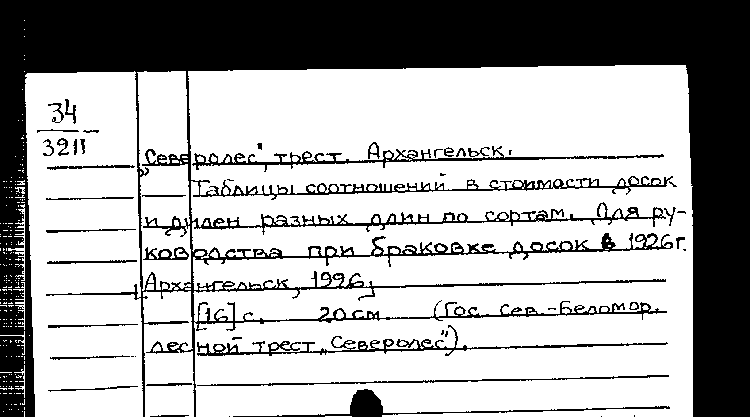 34
3211
„Северолес", трест. Архангельск.
Таблицы соотношений в стоимости досок
и дилен разных длин по сортам. Для ру-
ководства при браковке досок в 1926 г.
Архангельск, 1996,
[16] с. 20 см. (Гос. Сев.-Беломор.
лесной трест „Северолес").